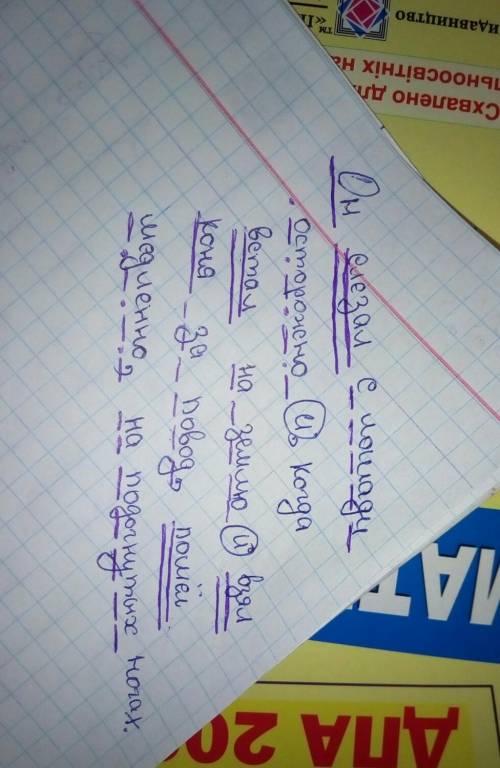 Он слезал с лошади
осторожно, и, когда
встал на землю и взял
коня за повод, пошёл
медленно, на подогнутых ногах.
идавництво
™ «П
Схвалено дл
льноосвітніх на
МАТ
ДПА 20